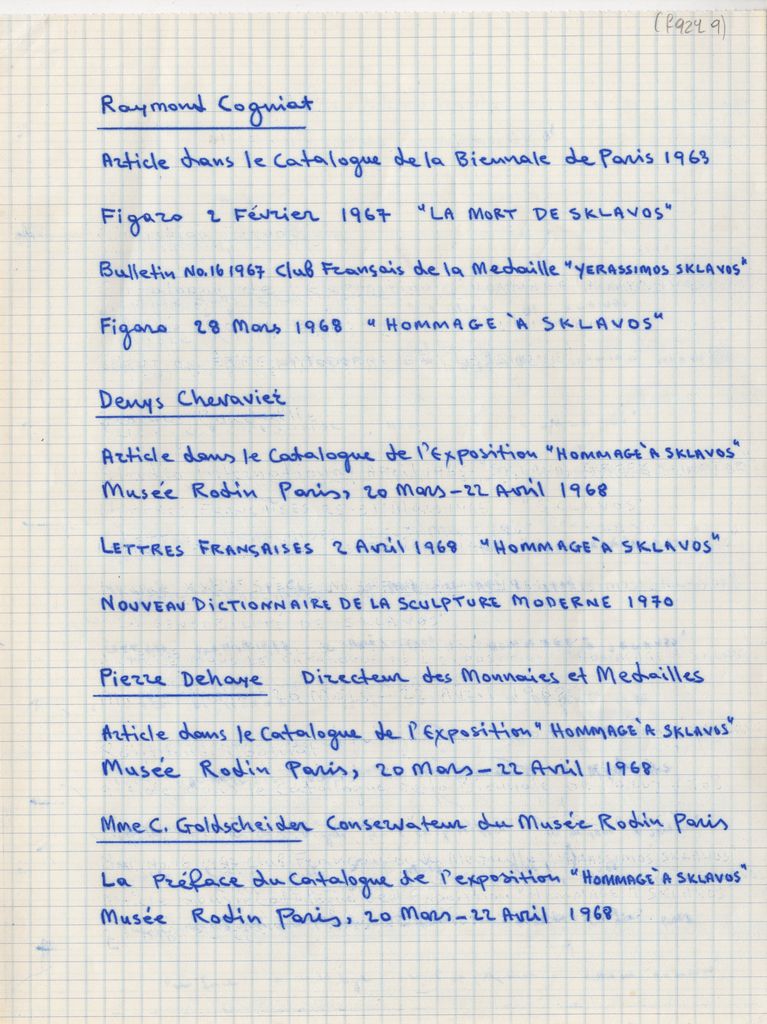 (F924 9)
Raymond Cogniat
Article dans le Catalogue de la Biennale de Paris 1963
Figaro 2 Février 1967 "LA MORT DE SKLAVOS"
Bulletin No.16 1967 Club Français de la Medaille "YERASSIMOS SKLAVOS"
Figaro 28 Mars 1968 "HOMMAGE À SKLAVOS"
Denys Chevavier
Article dans le Catalogue de l'Exposition "HOMMAGE À SKLAVOS"
Musée Rodin Paris, 20 Mars-22 Avril 1968
LETTRES FRANÇAISES 2 Avril 1968 "HOMMAGE À SKLAVOS"
NOUVEAU DICTIONNAIRE DE LA SCULPTURE MODERNE 1970
Pierre Dehaye Directeur des Monnaies et Medailles
Article dans le Catalogue de l'Exposition "HOMMAGE À SKLAVOS"
Musée Rodin Paris, 20 Mars-22 Avril 1968
Mme C. Goldscheider Conservateur du Musée Rodin Paris
La Préface du Catalogue de l'exposition "HOMMAGE À SKLAVOS"
Musée Rodin Paris, 20 Mars-22 Avril 1968